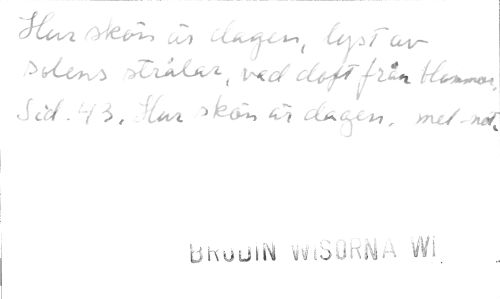 Hur skön är dagen, lyst av
solens strålar, vad doft från blommor,
Sid. 43. Hur skön är dagen. mel-not.
BRODIN WISORNA WI